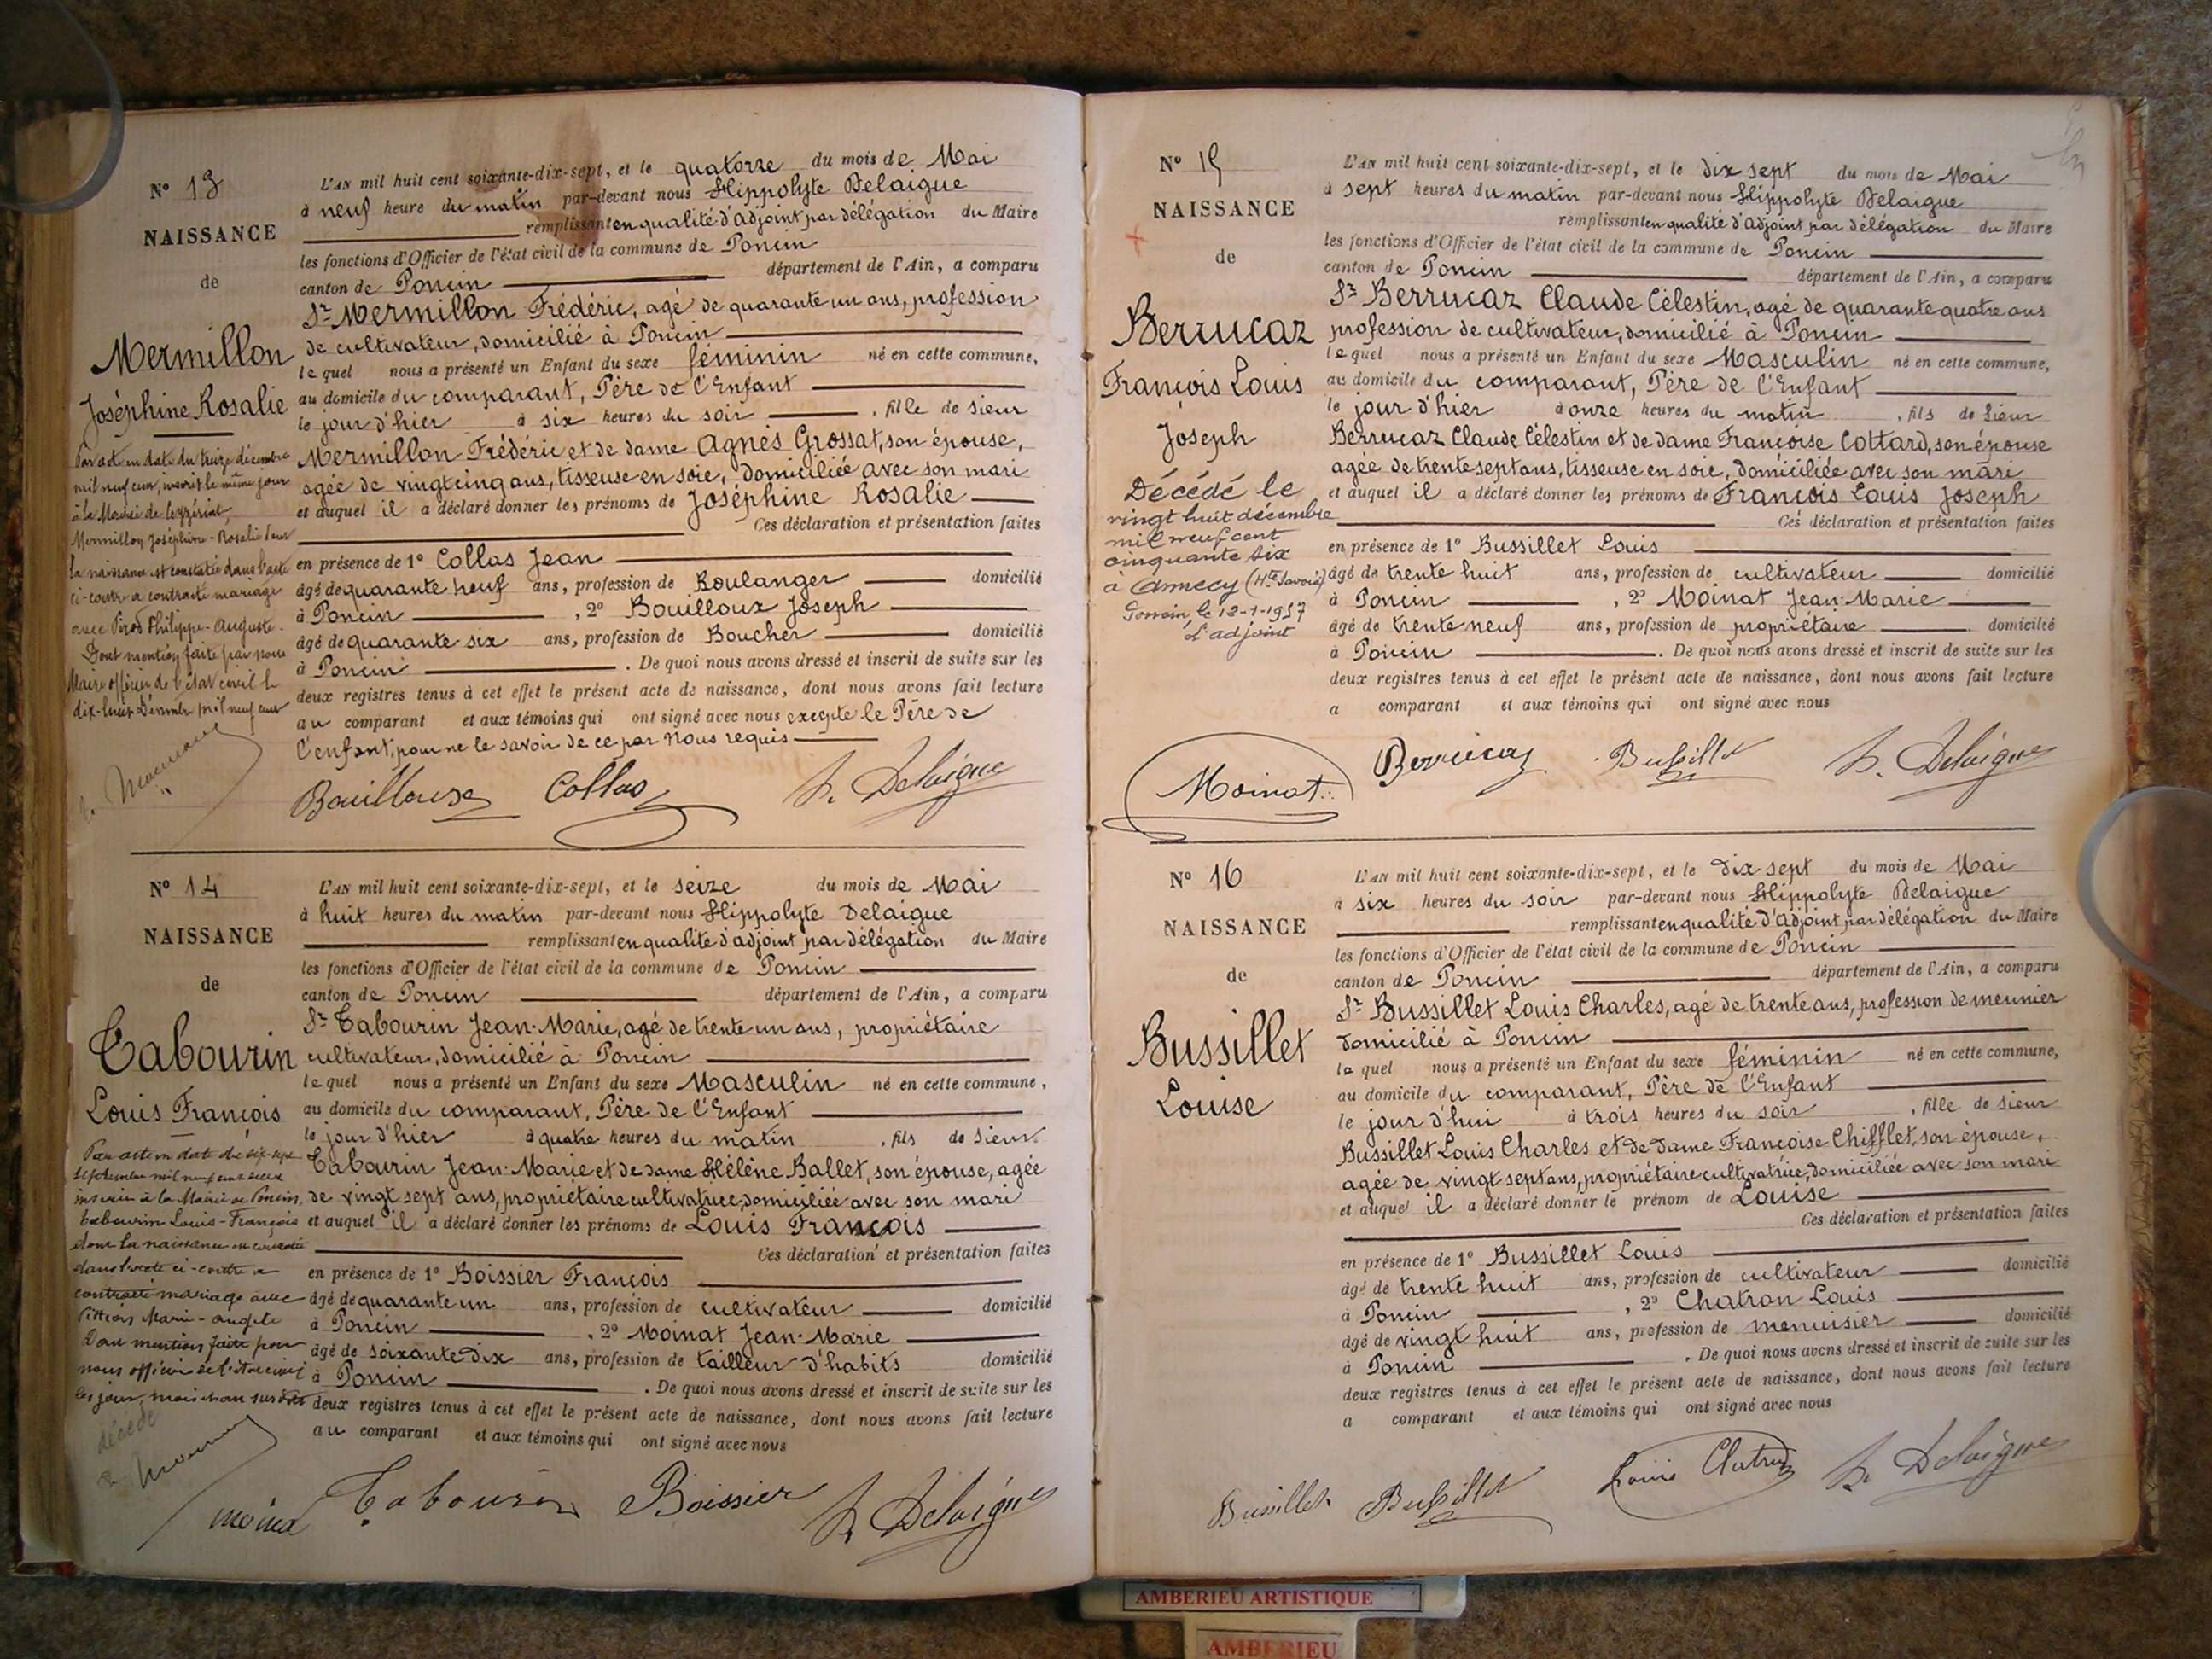 N° 13
NAISSANCE
de
Mermillon
Joséphine Rosalie
Par acte en date du treize décembre
mil neuf cent, inscrit le même jour
à la Mairie de
Mermillon Joséphine-Rosalie dont
la naissance est constatée dans l'acte
ci-contre a contracté mariage
avec Philippe-Auguste.
Dont mention faite par nous
Maire officier de l'état civil le
dix-huit Décembre mil neuf cent
L'AN mil huit cent soixante-dix-sept, et le quatorze du mois de Mai
à neuf heure du matin par-devant nous Hippolyte Delaigue
remplissant en qualité d'adjoint par délégation du Maire
les fonctions d'Officier de l'état civil de la commune de Poncin
canton de Poncin département de l'Ain, a comparu
Sr Mermillon Frédéric, agé de quarante un ans, profession
de cultivateur, domicilié à Poncin
lequel nous a présenté un Enfant du sexe féminin né en cette commune,
au domicile du comparant, Père de l'Enfant
le jour d'hier à six heures du soir, fille de sieur
Mermillon Frédéric et de dame Agnès Grossat, son épouse,
agée de vingt cinq ans, tisseuse en soie, domiciliée avec son mari
et auquel il a déclaré donner les prénoms de Joséphine Rosalie
Ces déclaration et présentation faites
en présence de 1° Collas Jean
âgé de quarante neuf ans, profession de Boulanger domicilié
à Poncin, 2° Bouilloux Joseph
âgé de quarante six ans, profession de Boucher domicilié
à Poncin. De quoi nous avons dressé et inscrit de suite sur les
deux registres tenus à cet effet le présent acte de naissance, dont nous avons fait lecture
au comparant et aux témoins qui ont signé avec nous excepté le Père de
l'enfant, pour ne le savoir de ce par Nous requis
Bouilloux Collas h. Delaigue
N° 14
NAISSANCE
de
Tabourin
Louis François
Par acte en date du dix-sept
Septembre mil neuf cent
inscrit à la Mairie de Poncin,
Tabourin Louis-François
dont la naissance est constatée
dans l'acte ci-contre a
contracté mariage avec
Marie-
Dont mention faite par
nous officier de l'état civil
les jour, mois et an susdits
décédé
L'AN mil huit cent soixante-dix-sept, et le seize du mois de Mai
à huit heures du matin par-devant nous Hippolyte Delaigue
remplissant en qualité d'adjoint par délégation du Maire
les fonctions d'Officier de l'état civil de la commune de Poncin
canton de Poncin département de l'Ain, a comparu
Sr Tabourin Jean-Marie, agé de trente un ans, propriétaire
cultivateur, domicilié à Poncin
lequel nous a présenté un Enfant du sexe Masculin né en cette commune,
au domicile du comparant, Père de l'Enfant
le jour d'hier à quatre heures du matin, fils de sieur
Tabourin Jean-Marie et de dame Hélène Ballet, son épouse, agée
de vingt sept ans, propriétaire cultivatrice, domiciliée avec son mari
et auquel il a déclaré donner les prénoms de Louis François
Ces déclaration et présentation faites
en présence de 1° Boissier François
âgé de quarante un ans, profession de cultivateur domicilié
à Poncin, 2° Moinat Jean-Marie
âgé de soixante dix ans, profession de tailleur d'habits domicilié
à Poncin. De quoi nous avons dressé et inscrit de suite sur les
deux registres tenus à cet effet le présent acte de naissance, dont nous avons fait lecture
au comparant et aux témoins qui ont signé avec nous
moina Tabourin Boissier h. Delaigue
N° 15
NAISSANCE
de
Berrucaz
François Louis
Joseph
Décédé le
vingt huit décembre
mil neuf cent
cinquante six
à Annecy (Hte Savoie)
Poncin le 12-1-1957
L'adjoint
L'AN mil huit cent soixante-dix-sept, et le dix sept du mois de Mai
à sept heures du matin par-devant nous Hippolyte Delaigue
remplissant en qualité d'adjoint par délégation du Maire
les fonctions d'Officier de l'état civil de la commune de Poncin
canton de Poncin département de l'Ain, a comparu
Sr Berrucaz Claude Célestin, agé de quarante quatre ans
profession de cultivateur, domicilié à Poncin
lequel nous a présenté un Enfant du sexe Masculin né en cette commune,
au domicile du comparant, Père de l'Enfant
le jour d'hier à onze heures du matin, fils de sieur
Berrucaz Claude Célestin et de dame Françoise Cottard, son épouse
agée de trente sept ans, tisseuse en soie, domiciliée avec son mari
et auquel il a déclaré donner les prénoms de François Louis Joseph
Ces déclaration et présentation faites
en présence de 1° Bussillet Louis
âgé de trente huit ans, profession de cultivateur domicilié
à Poncin, 2° Moinat Jean-Marie
âgé de trente neuf ans, profession de propriétaire domicilié
à Poncin. De quoi nous avons dressé et inscrit de suite sur les
deux registres tenus à cet effet le présent acte de naissance, dont nous avons fait lecture
a comparant et aux témoins qui ont signé avec nous
Moinat Berrucaz Bussillet h. Delaigue
N° 16
NAISSANCE
de
Bussillet
Louise
L'AN mil huit cent soixante-dix-sept, et le dix sept du mois de Mai
à six heures du soir par-devant nous Hippolyte Delaigue
remplissant en qualité d'adjoint par délégation du Maire
les fonctions d'Officier de l'état civil de la commune de Poncin
canton de Poncin département de l'Ain, a comparu
Sr Bussillet Louis Charles, agé de trente ans, profession de meunier
domicilié à Poncin
lequel nous a présenté un Enfant du sexe féminin né en cette commune,
au domicile du comparant, Père de l'Enfant
le jour d'hui à trois heures du soir, fille de sieur
Bussillet Louis Charles et de dame Françoise Chifflet, son épouse,
agée de vingt sept ans, propriétaire cultivatrice, domiciliée avec son mari
et auquel il a déclaré donner le prénom de Louise
Ces déclaration et présentation faites
en présence de 1° Bussillet Louis
âgé de trente huit ans, profession de cultivateur domicilié
à Poncin, 2° Chatron Louis
âgé de vingt huit ans, profession de menuisier domicilié
à Poncin. De quoi nous avons dressé et inscrit de suite sur les
deux registres tenus à cet effet le présent acte de naissance, dont nous avons fait lecture
a comparant et aux témoins qui ont signé avec nous
Bussillet Bussillet Louis Chatron h. Delaigue
AMBERIEU ARTISTIQUE
AMBERIEU